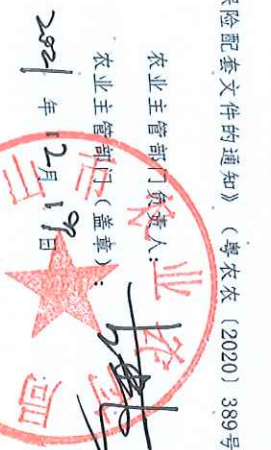 险配套文件的通知》（粤农农〔2020〕389号
农业主管部门负责人：
农业主管部门（盖章）：
2021年12月19日